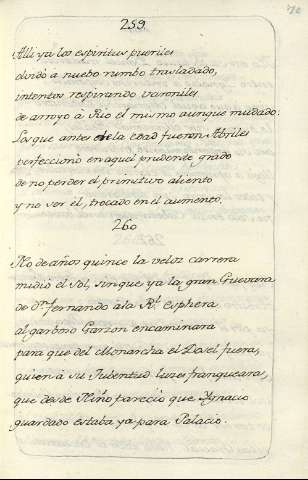 259
Alli ya los espiritus pueriles
olvidó a nuebo rumbo trasladado,
intentos respirando varoniles
de arroyo à Rio el mismo aunque mudado:
Los que antes de la edad fueron Abriles
perfeccionó en aquel prudente grado
de no perder el primitivo aliento
y no ser el, trocado en el aumento.
260
No de años quince la veloz carrera
midió el Sol, sin que ya la gran Guevara
de Dn. Fernando à la Rl. Esphera
al garboso Garzon encaminara
para que del Monarcha el Dosel fuera,
quien à su Jubentud luzes franqueara,
que desde Niño pareció que Ygnacio
guardado estaba ya para Palacio.